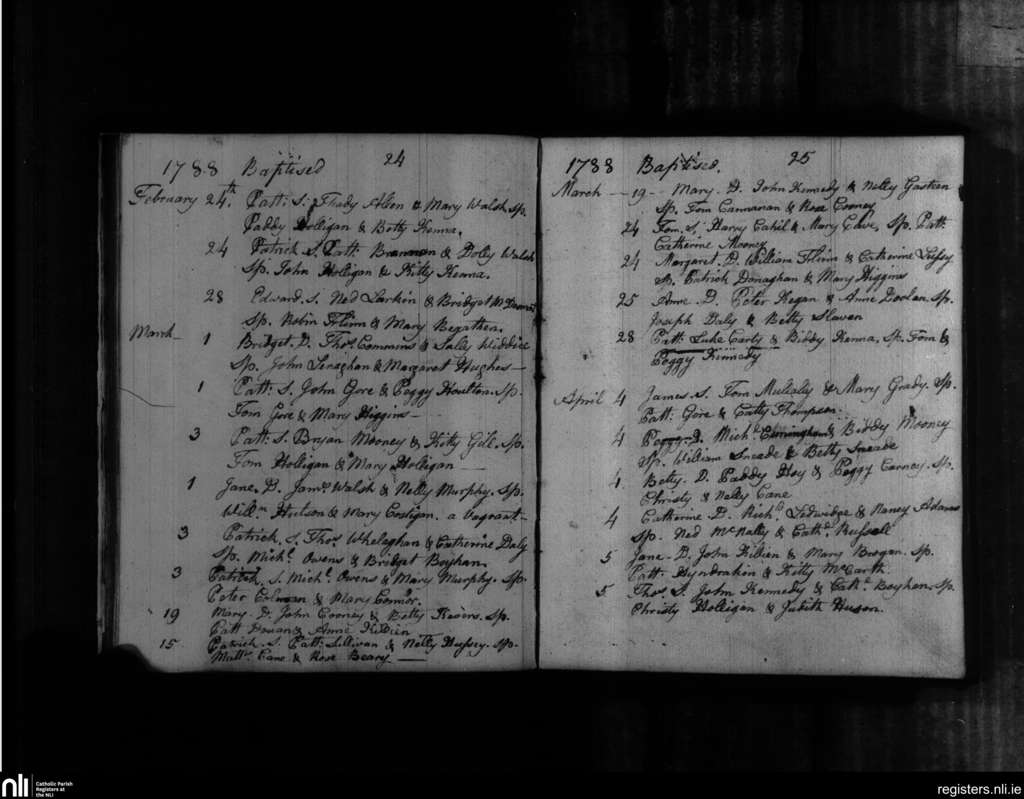 1788 Baptised 24
February 24th. Patt: S. Thady Aben & Mary Walsh Sp.
Paddy Holligan & Betty Kenna.
24 Patrick S. Patt: Brannan & Doley Walsh
Sp. John Holligan & Kitty Kenna.
28 Edward. S. Ned Larkin & Bridget
Sp. Robin Flinn & Mary Begathen.
March 1 Bridget. D. Thos. Commins & Sally Widdice
Sp. John Lenaghan & Margaret Hughes
1 Patt: S. John Gore & Peggy Houlton. Sp.
Tom Gore & Mary Higgins
3 Patt: S. Bryan Mooney & Kitty Gill. Sp.
Tom Holligan & Mary Holligan
1 Jane. D. Jams. Walsh & Nelly Murphy. Sp.
Willm. Hutson & Mary Costigan. a Vagrant
3 Patrick. S. Thos. Whelaghan & Catherine Daly
Sp. Michl. Owens & Bridget Boyhan.
3 Patrick. S. Michl. Owens & Mary Murphy. Sp.
Peter Colman & Mary Connor.
19 Mary D. John Cooney & Betty Kevins. Sp.
Patt & Anne Kibbien
15 Patrick. S. Patt: Sullivan & Nelly Hussey. Sp.
Mattw. Cane & Rose Beary
1788 Baptised. 25
March 19 Mary. D. John Kennedy & Nelly Gasteen
Sp. Tom Cannanan & Rose Cooney
24 Tom. S. Harry Cahil & Mary Cave, Sp. Patt:
Catherine Mooney
24 Margaret. D. William Flinn & Catherine
Sp. Patrick Donaghan & Mary Higgins
25 Anne. D. Peter Kegan & Anne Doolan. Sp.
Joseph Daly & Betty Slaven
28 Patt: Luke Carty & Biddy Kenna. Sp. Tom &
Peggy Kennedy
April 4 James. S. Tom Mulaly & Mary Grady. Sp.
Patt: Gore & Catty Thompson.
4 Peggy. D. Michl. Cunningham & Biddy Mooney
Sp. William Sneade & Betty Sneade
4. Betty. D. Paddy Hoy & Peggy Carney. Sp.
Christy & Nelly Cane
4 Catherine D. Richd. Ledwidge & Nancy Adams
Sp. Ned McNally & Cathe. Russell
5 Jane. D. John Kibien & Mary Brogan. Sp.
Patt: Hyndrakin & Kitty McCarth.
5 Thos. S. John Kennedy & Cathe. Boyhan. Sp.
Christy Holligan & Judith Huson.
nli
Catholic Parish
Registers at
the NLI
registers.nli.ie